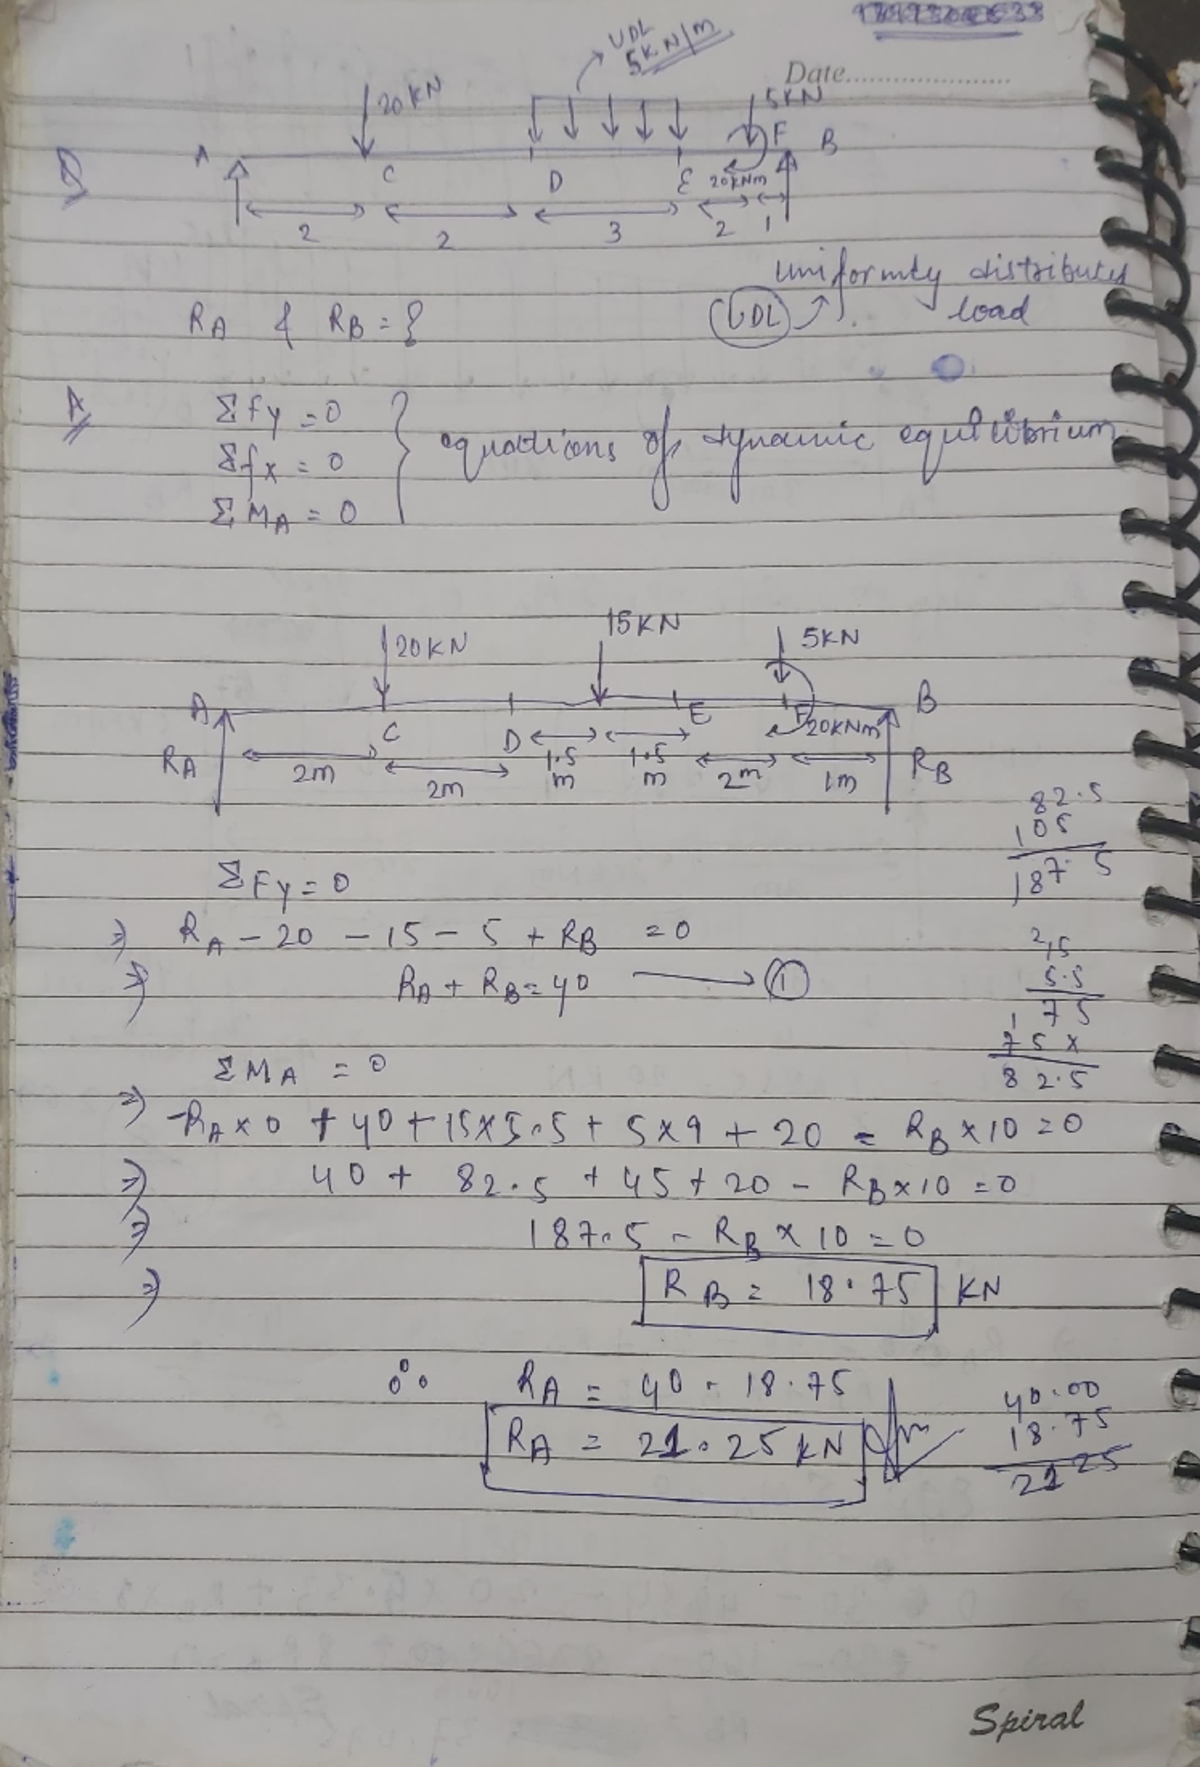 Date....................
UDL
5KN/m
20KN
5KN
A C D E F B
20KNm
2 2 3 2 1
Q
uniformly distributed
load
UDL
RA & RB = ?
A
ΣFy = 0
Σfx = 0
ΣMA = 0
equations of dynamic equilibrium
20KN 15KN 5KN
A C D E F B
20KNm
RA RB
2m 2m 1.5 m 1.5 m 2m 1m
82.5
105
187.5
ΣFy = 0
⇒ RA - 20 - 15 - 5 + RB = 0
⇒ RA + RB = 40 → ①
5.5
75
75x
82.5
ΣMA = 0
⇒ -RA×0 + 40 + 15×5.5 + 5×9 + 20 - RB×10 = 0
⇒ 40 + 82.5 + 45 + 20 - RB×10 = 0
⇒ 187.5 - RB × 10 = 0
⇒ RB = 18.75 KN
∴ RA = 40 - 18.75
RA = 21.25 KN
40.00
18.75
21 25
Spiral